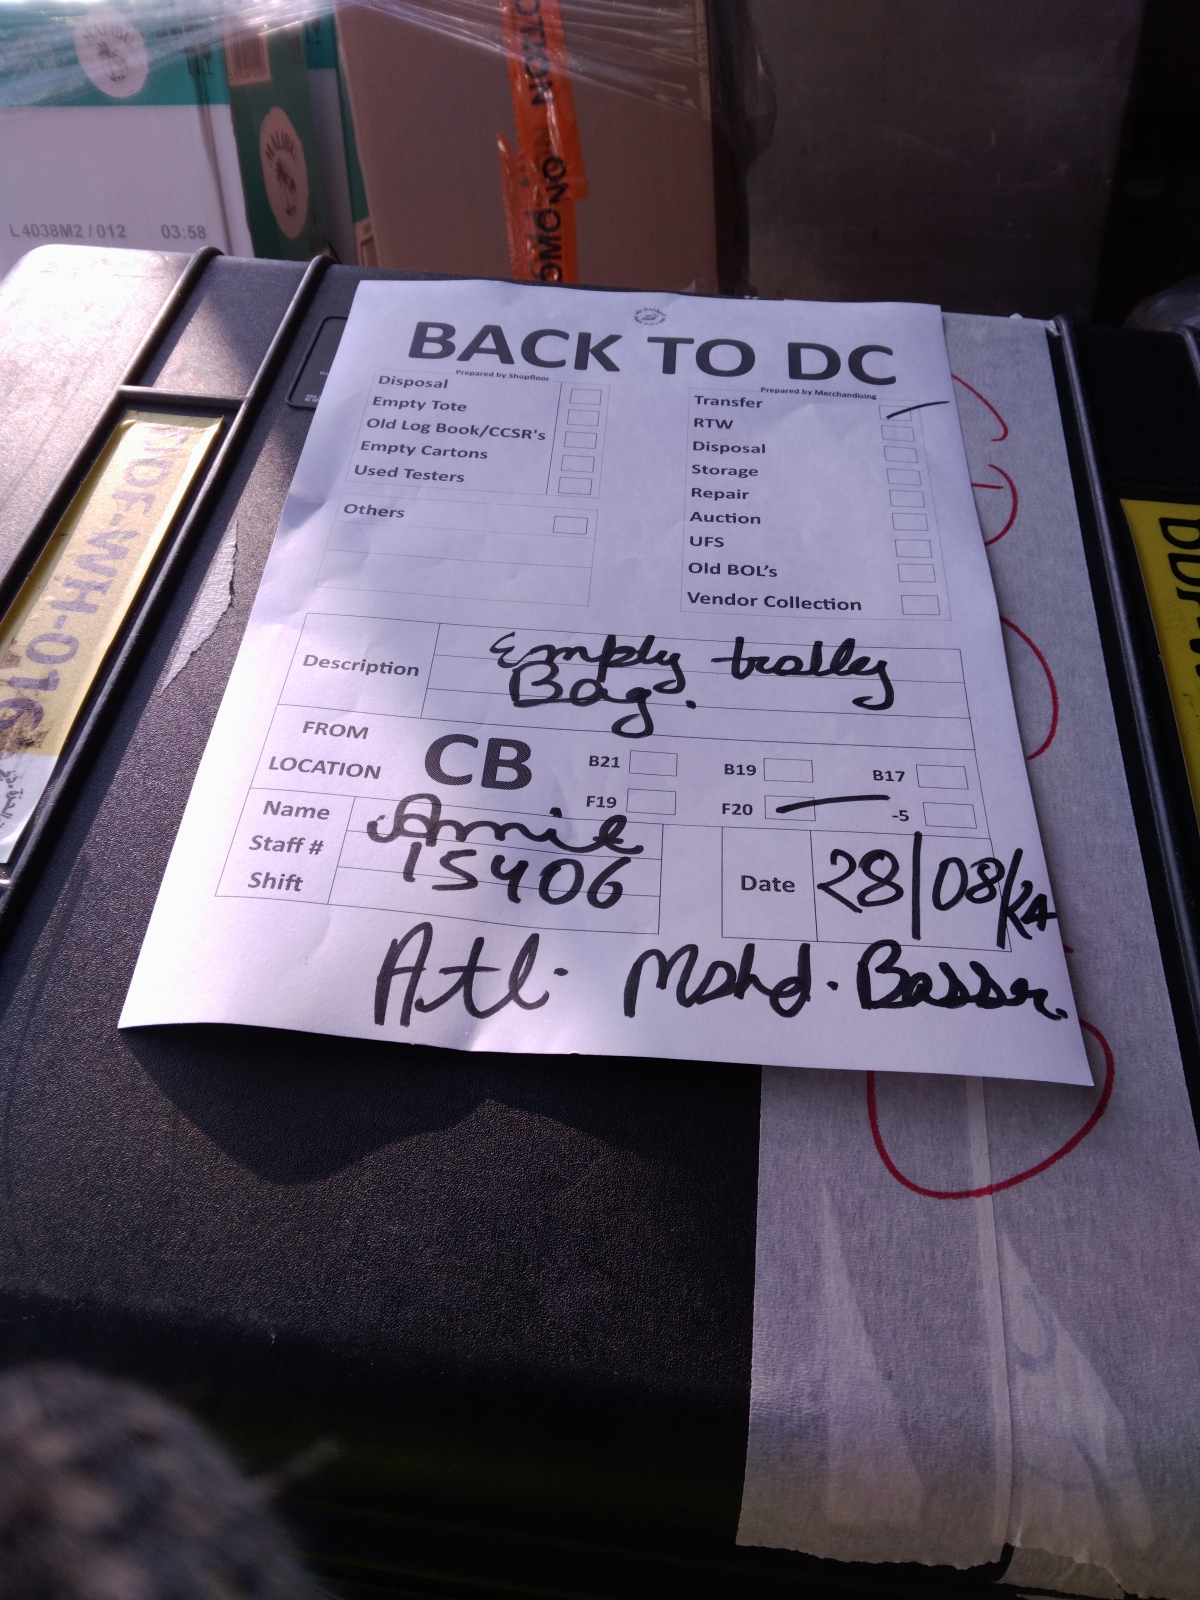 MALIBU
L4038M2 / 012 03:58
BACK TO DC
Prepared by Shopfloor
Disposal
Empty Tote
Old Log Book/CCSR's
Empty Cartons
Used Testers
Others
Prepared by Merchandising
Transfer
RTW
Disposal
Storage
Repair
Auction
UFS
Old BOL's
Vendor Collection
Description Empty trolley
Bag.
FROM
LOCATION CB
B21 B19 B17
F19 F20 -5
Name
Staff # 15406
Shift
Date 28/08/24
Mohd.